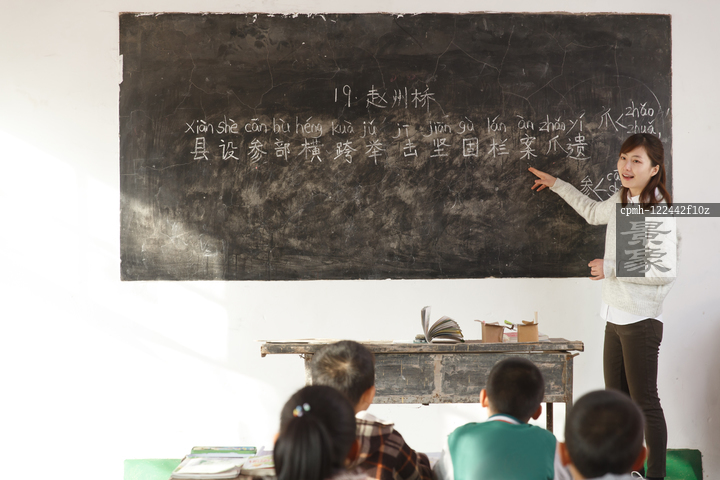 19.赵州桥
xiàn shè cān bù héng kuà jǔ jī jiān gù lán àn zhǎo yí
县设参部横跨举击坚固栏案爪遗
爪<zhǎo
zhuǎ
参<
cpmh-12442f10z
景象